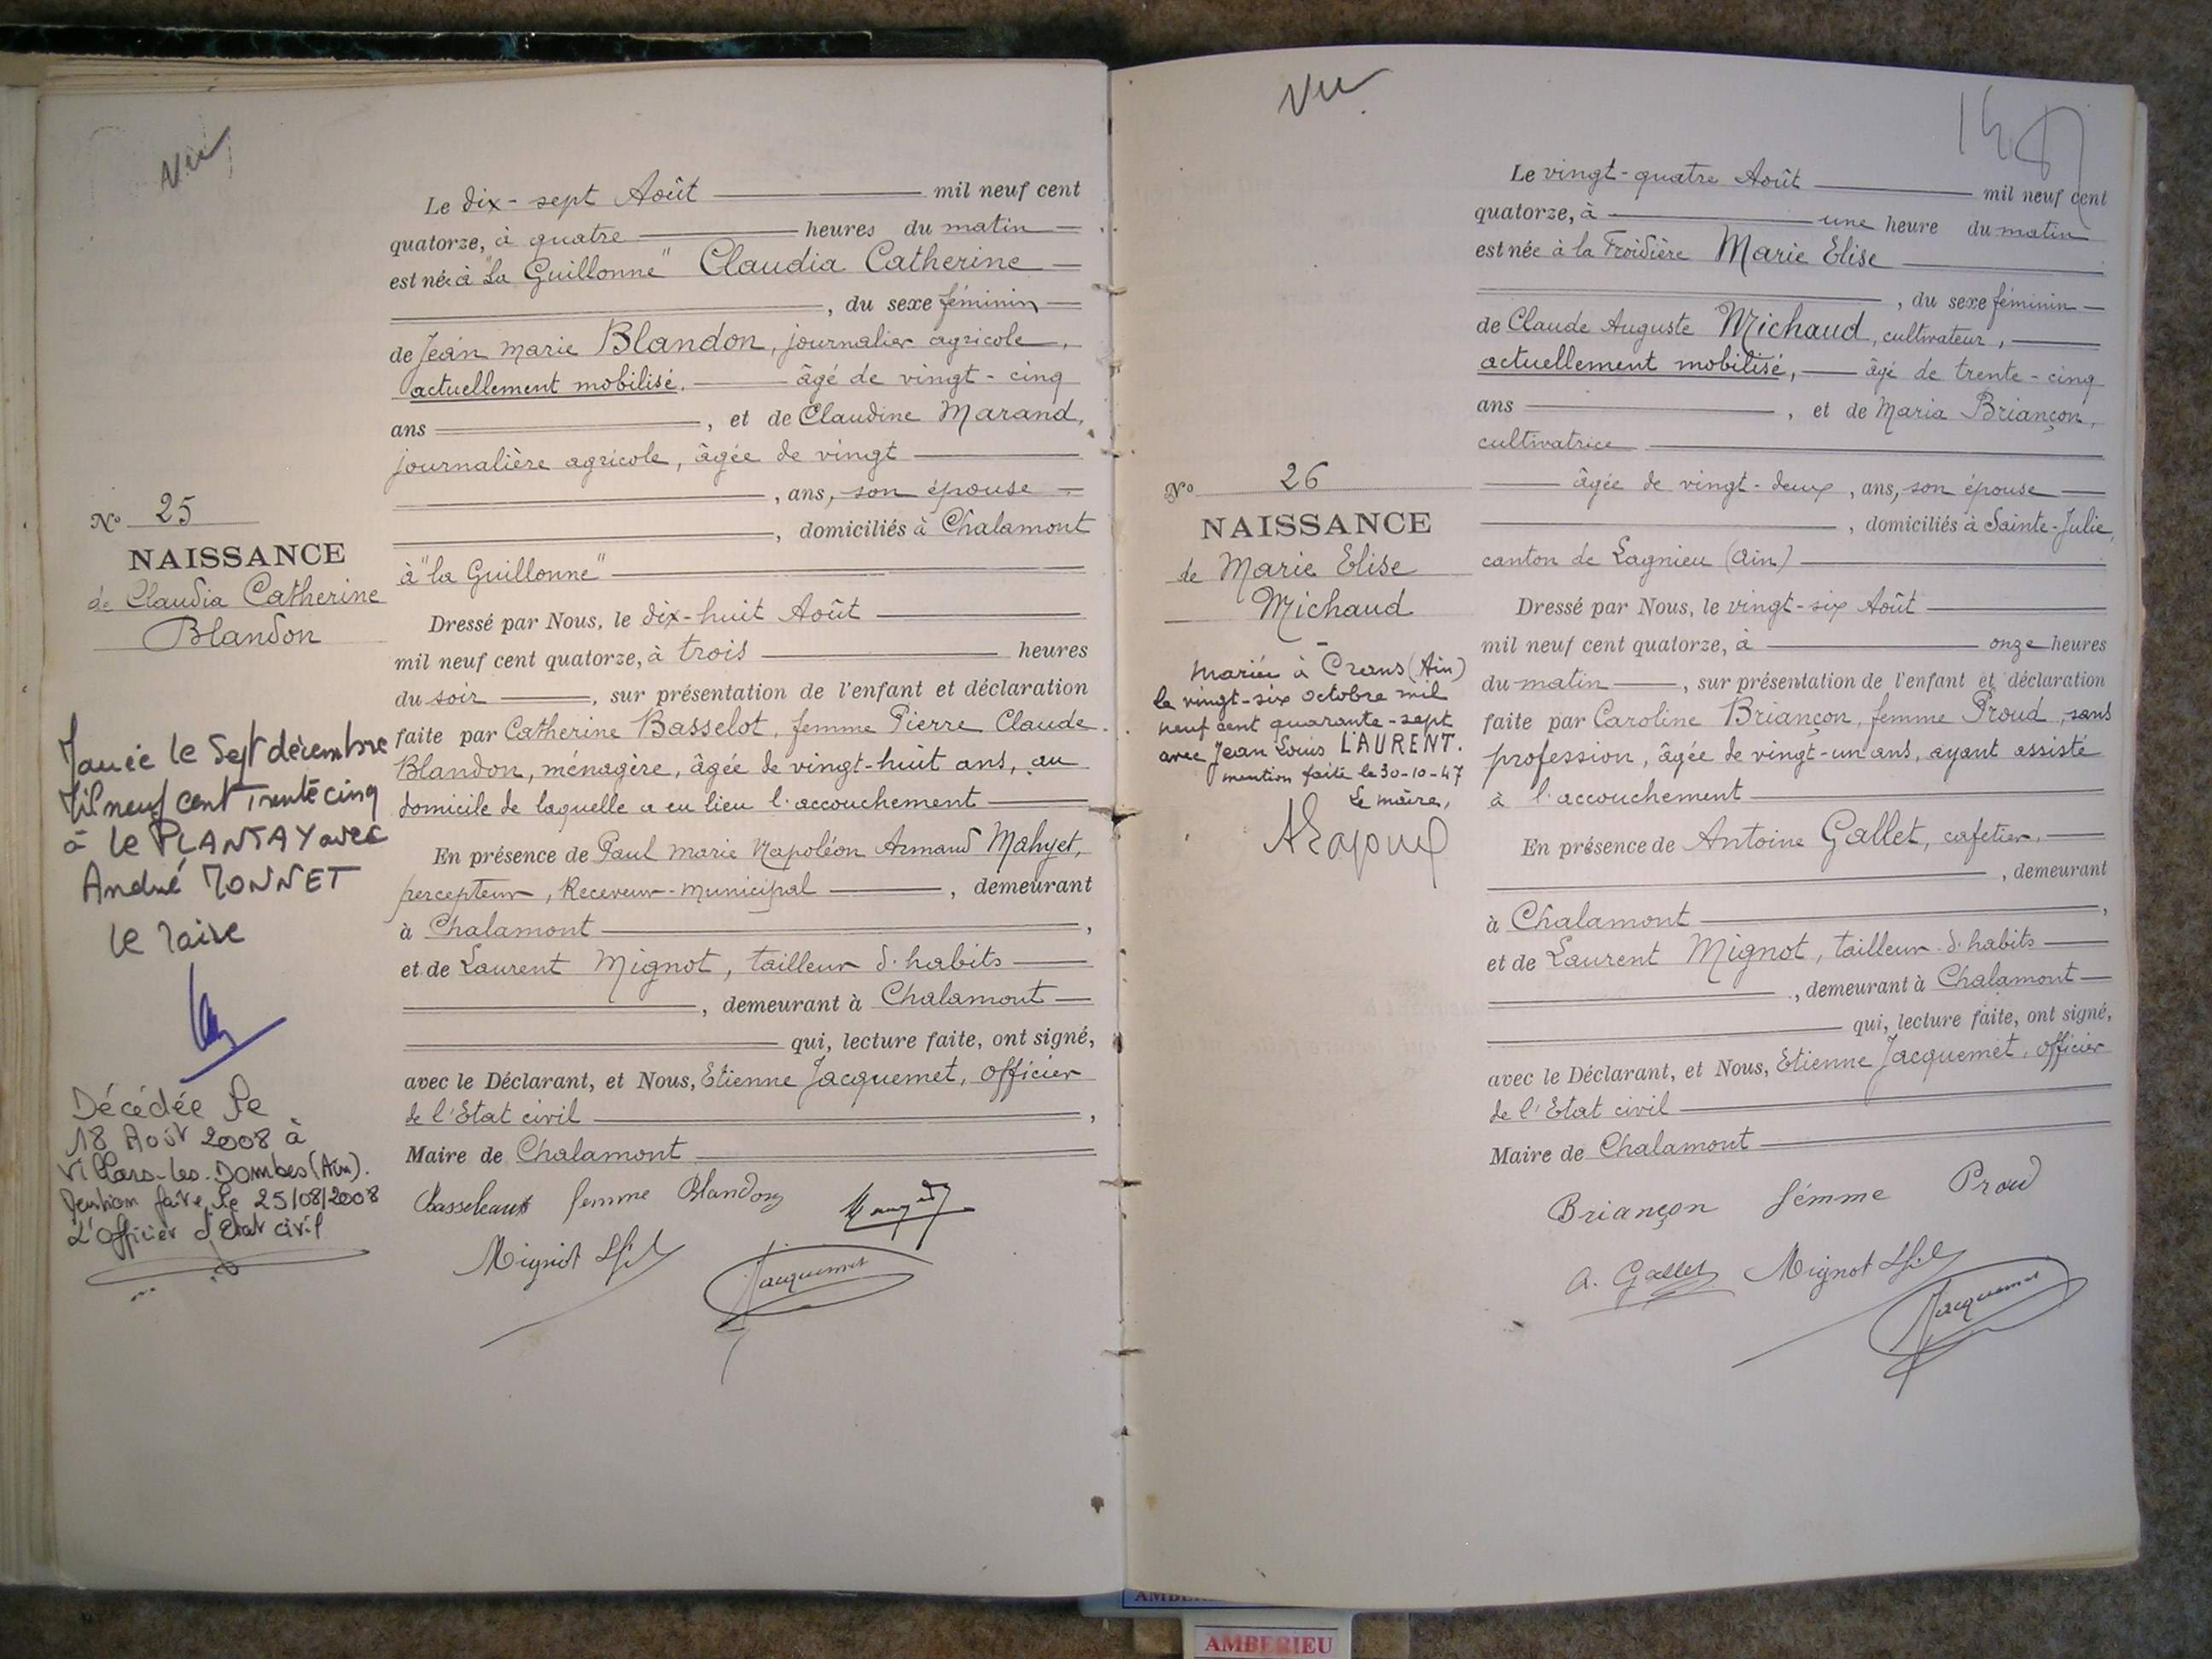 Vu
Le dix-sept Août mil neuf cent
quatorze, à quatre heures du matin
est née à "La Guillonne" Claudia Catherine
, du sexe féminin
de Jean Marie Blandon, journalier agricole,
actuellement mobilisé. âgé de vingt-cinq
ans , et de Claudine Marand,
journalière agricole, âgée de vingt
, ans, son épouse
, domiciliés à Chalamont
à "la Guillonne"
Dressé par Nous, le dix-huit Août
mil neuf cent quatorze, à trois heures
du soir , sur présentation de l'enfant et déclaration
faite par Catherine Basselot, femme Pierre Claude
Blandon, ménagère, âgée de vingt-huit ans, au
domicile de laquelle a eu lieu l'accouchement
En présence de Paul Marie Napoléon Armand Mahyet,
percepteur, Receveur-Municipal , demeurant
à Chalamont ,
et de Laurent Mignot, tailleur d'habits
, demeurant à Chalamont
qui, lecture faite, ont signé,
avec le Déclarant, et Nous, Etienne Jacquemet, officier
de l'Etat civil ,
Maire de Chalamont
femme Blandon
Mignot
Jacquemet
No 25
NAISSANCE
de Claudia Catherine
Blandon
Mariée le Sept décembre
Mil neuf cent Trente cinq
à Le PLANTAY avec
André MONNET
Le Maire
Décédée le
18 Août 2008 à
Villars-les-Dombes (Ain).
Mention faite le 25/08/2008
L'Officier d'Etat civil
Vu
Le vingt-quatre Août mil neuf cent
quatorze, à une heure du matin
est née à la Froidière Marie Elise
, du sexe féminin
de Claude Auguste Michaud, cultivateur,
actuellement mobilisé, âgé de trente-cinq
ans , et de Maria Briançon,
cultivatrice
âgée de vingt-deux, ans, son épouse
, domiciliés à Sainte-Julie,
canton de Lagnieu (Ain)
Dressé par Nous, le vingt-six Août
mil neuf cent quatorze, à onze heures
du matin , sur présentation de l'enfant et déclaration
faite par Caroline Briançon, femme Proud, sans
profession, âgée de vingt-un ans, ayant assisté
à l'accouchement
En présence de Antoine Gallet, cafetier,
, demeurant
à Chalamont ,
et de Laurent Mignot, tailleur d'habits
, demeurant à Chalamont
qui, lecture faite, ont signé,
avec le Déclarant, et Nous, Etienne Jacquemet, officier
de l'Etat civil
Maire de Chalamont
Briançon fémme Proud
A. Gallet Mignot
Jacquemet
No 26
NAISSANCE
de Marie Elise
Michaud
Mariée à Crans (Ain)
le vingt-six octobre mil
neuf cent quarante-sept
avec Jean Louis LAURENT.
mention faite le 30-10-47
Le maire,
AMBERIEU